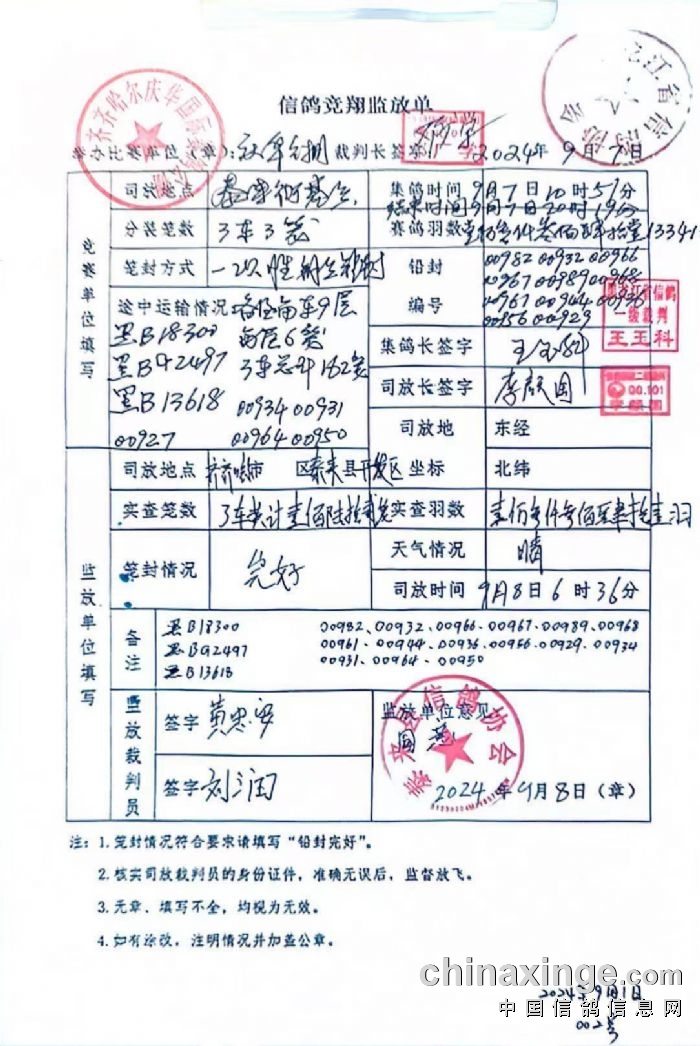 信鸽竞翔监放单
举办比赛单位(章): 裁判长签字: 2024年9月7日
竞赛单位填写
司放地点 集鸽时间 9月7日10时57分
结束时间9月7日20时19分
分装笼数 3车3笼 赛鸽羽数 13341
笼封方式 一次性 铅封 00982 00932 00966
00967 00989 00968
编号 00944 00936
00956 00929
途中运输情况 每车9层
黑B18300 每层6笼
黑B92497 3车总计162笼
黑B13618 00934 00931
00927 00964 00950
集鸽长签字
司放长签字 李颜国
司放地 东经
坐标 北纬
黑龙江省信鸽
一级裁判
王玉科
监放单位填写
司放地点 齐齐哈尔市 区泰来县开发区
实查笼数 3车共计壹佰陆拾贰笼 实查羽数
笼封情况 完好 天气情况 晴
司放时间 9月8日6时36分
备注 黑B18300 00982、00932、00966、00967、00989、00968
黑B92497 00961、00944、00936、00956、00929、00934
黑B13618 00931、00964、00950
监放裁判员 签字 黄忠军 监放单位意见
同意
签字 刘润 2024年9月8日(章)
泰来县信鸽协会
注: 1. 笼封情况符合要求请填写“铅封完好”。
2. 核实司放裁判员的身份证件,准确无误后,监督放飞。
3. 无章、填写不全,均视为无效。
4. 如有涂改,注明情况并加盖公章。
chinaxinge.com
中国信鸽信息网
2024年9月1日
002号